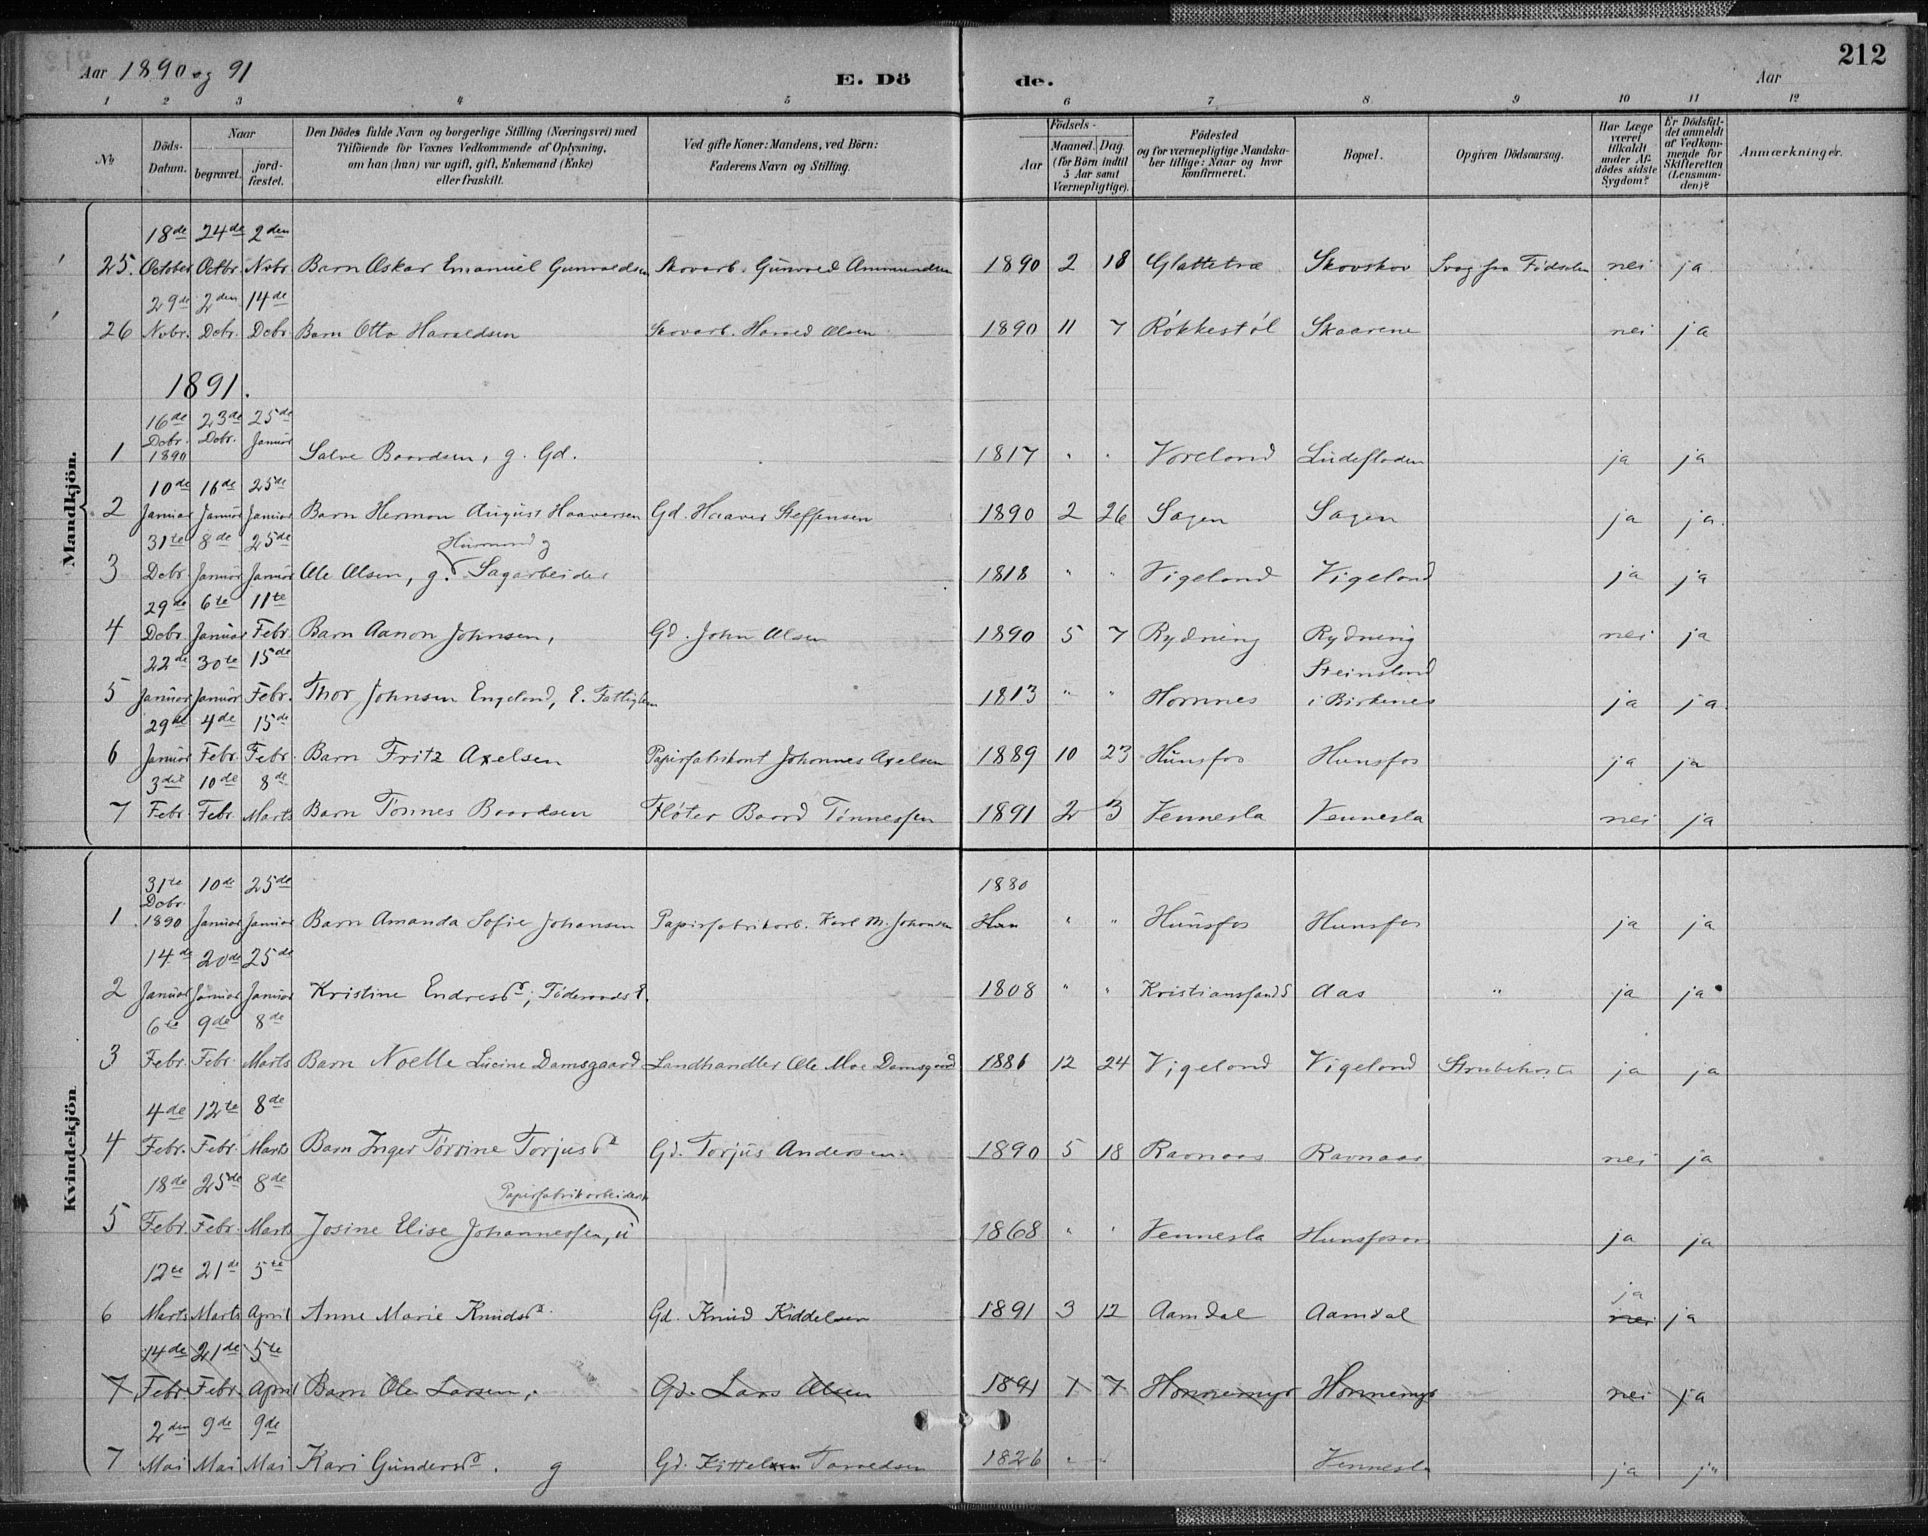 Aar 1890 og 91
E. Dö
de.
Aar
212
1 2 3 4 5 6 7 8 9 10 11 12
№
Döds-Datum.
Naar
begravet.
jord-fæstet.
Den Dödes fulde Navn og borgerlige Stilling (Næringsvei) med
Tilföiende for Voxnes Vedkommende af Oplysning,
om han (hun) var ugift, gift, Enkemand (Enke)
eller fraskilt.
Ved gifte Koner: Mandens, ved Börn:
Faderens Navn og Stilling.
Födsels-
Aar
Maaned. Dag.
(för Börn indtil
5 Aar samt
Værnepligtige).
Födested
og for værnepligtige Mandska-
ber tillige: Naar og hvor
Konfirmeret.
Bopæl.
Opgiven Dödsaarsag.
Har Læge
været
tilkaldt
under Af-
dödes sidste
Sygdom?
Er Dödsfal-
det anmeldt
af Vedkom-
mende for
Skifteretten
(Lensman-
den)?
Anmærkninger.
Mandkjön.
18de 24de 2den
25. October Octbr. Nvbr. Barn Oskar Emanuel Gunvaldsen Skovarb. Gunvald Ammundsen 1890 2 18 Glattetræ Skovskov Svag fra Fødselen nei ja
29de 2den 14de
26 Nvbr. Dcbr. Dcbr. Barn Otto Haraldsen Skovarb. Harald Olsen 1890 11 7 Røkkestøl Skaarene nei ja
1891.
16de 23de 25de
Dcbr. Dcbr. Januar
1 1890 Salve Baardsen, g. Gd. 1817 " " Voreland Lindefladen ja ja
10de 16de 25de
2 Januar Januar Januar Barn Herman August Haaversen Gd. Haaver Steffensen 1890 2 26 Sagen Sagen ja ja
31te 8de 25de Husmand og
3 Dcbr. Januar Januar Ole Olsen, g. Sagarbeider 1818 " " Vigeland Vigeland ja ja
29de 6te 11te
4 Dcbr. Januar Febr. Barn Aanon Johnsen, Gd. John Olsen 1890 5 7 Rydning Rydning nei ja
22de 30te 15de Steinsland
5 Januar Januar Febr. Thor Johnsen Engeland, E. Fattiglem 1813 " " Hornnes i Birkenes ja ja
29de 4de 15de
6 Januar Febr. Febr. Barn Fritz Axelsen Papirfabrikant Johannes Axelsen 1889 10 23 Hunsfos Hunsfos ja ja
3die 10de 8de
7 Febr. Febr. Marts Barn Tønnes Baardsen Fløter Baard Tønnessen 1891 2 3 Vennesla Vennesla nei ja
Kvindekjön
31te 10de 25de 1880
Dcbr.
1 1890 Januar Januar Barn Amanda Sofie Johansen Papirfabrikarb. Karl M. Johansen " " Hunsfos Hunsfos ja ja
14de 20de 25de
2 Januar Januar Januar Kristine Endresd., Føderaads E. 1808 " " Kristianssand S Aas " ja ja
6te 9de 8de
3 Febr. Febr. Marts Barn Noelle Lucine Damsgaard Landhandler Ole Moe Damsgaard 1886 12 24 Vigeland Vigeland Strubehoste ja ja
4de 12te 8de
4 Febr. Febr. Marts Barn Inger Tørrine Torjusd. Gd. Torjus Andersen. 1890 5 18 Ravnaas Ravnaas nei ja
18de 25de 8de Papirfabrikarbeiderske
5 Febr. Febr. Marts Josine Elise Johannessen, u 1868 " " Vennesla Hunsfosen ja ja
12te 21de 5te ja
6 Marts Marts April Anne Marie Knudsd. Gd. Knud Kiddelsen 1891 3 12 Aamdal Aamdal nei ja
14de 21de 5te
7 Febr. Febr. April Barn Ole Larsen, Gd. Lars Olsen 1891 1 7 Honnemyr Honnemyr nei ja
2den 9de 9de
7 Mai Mai Mai Kari Gundersd. g Gd. Kittel Tarvaldsen 1826 " " Vennesla ja ja